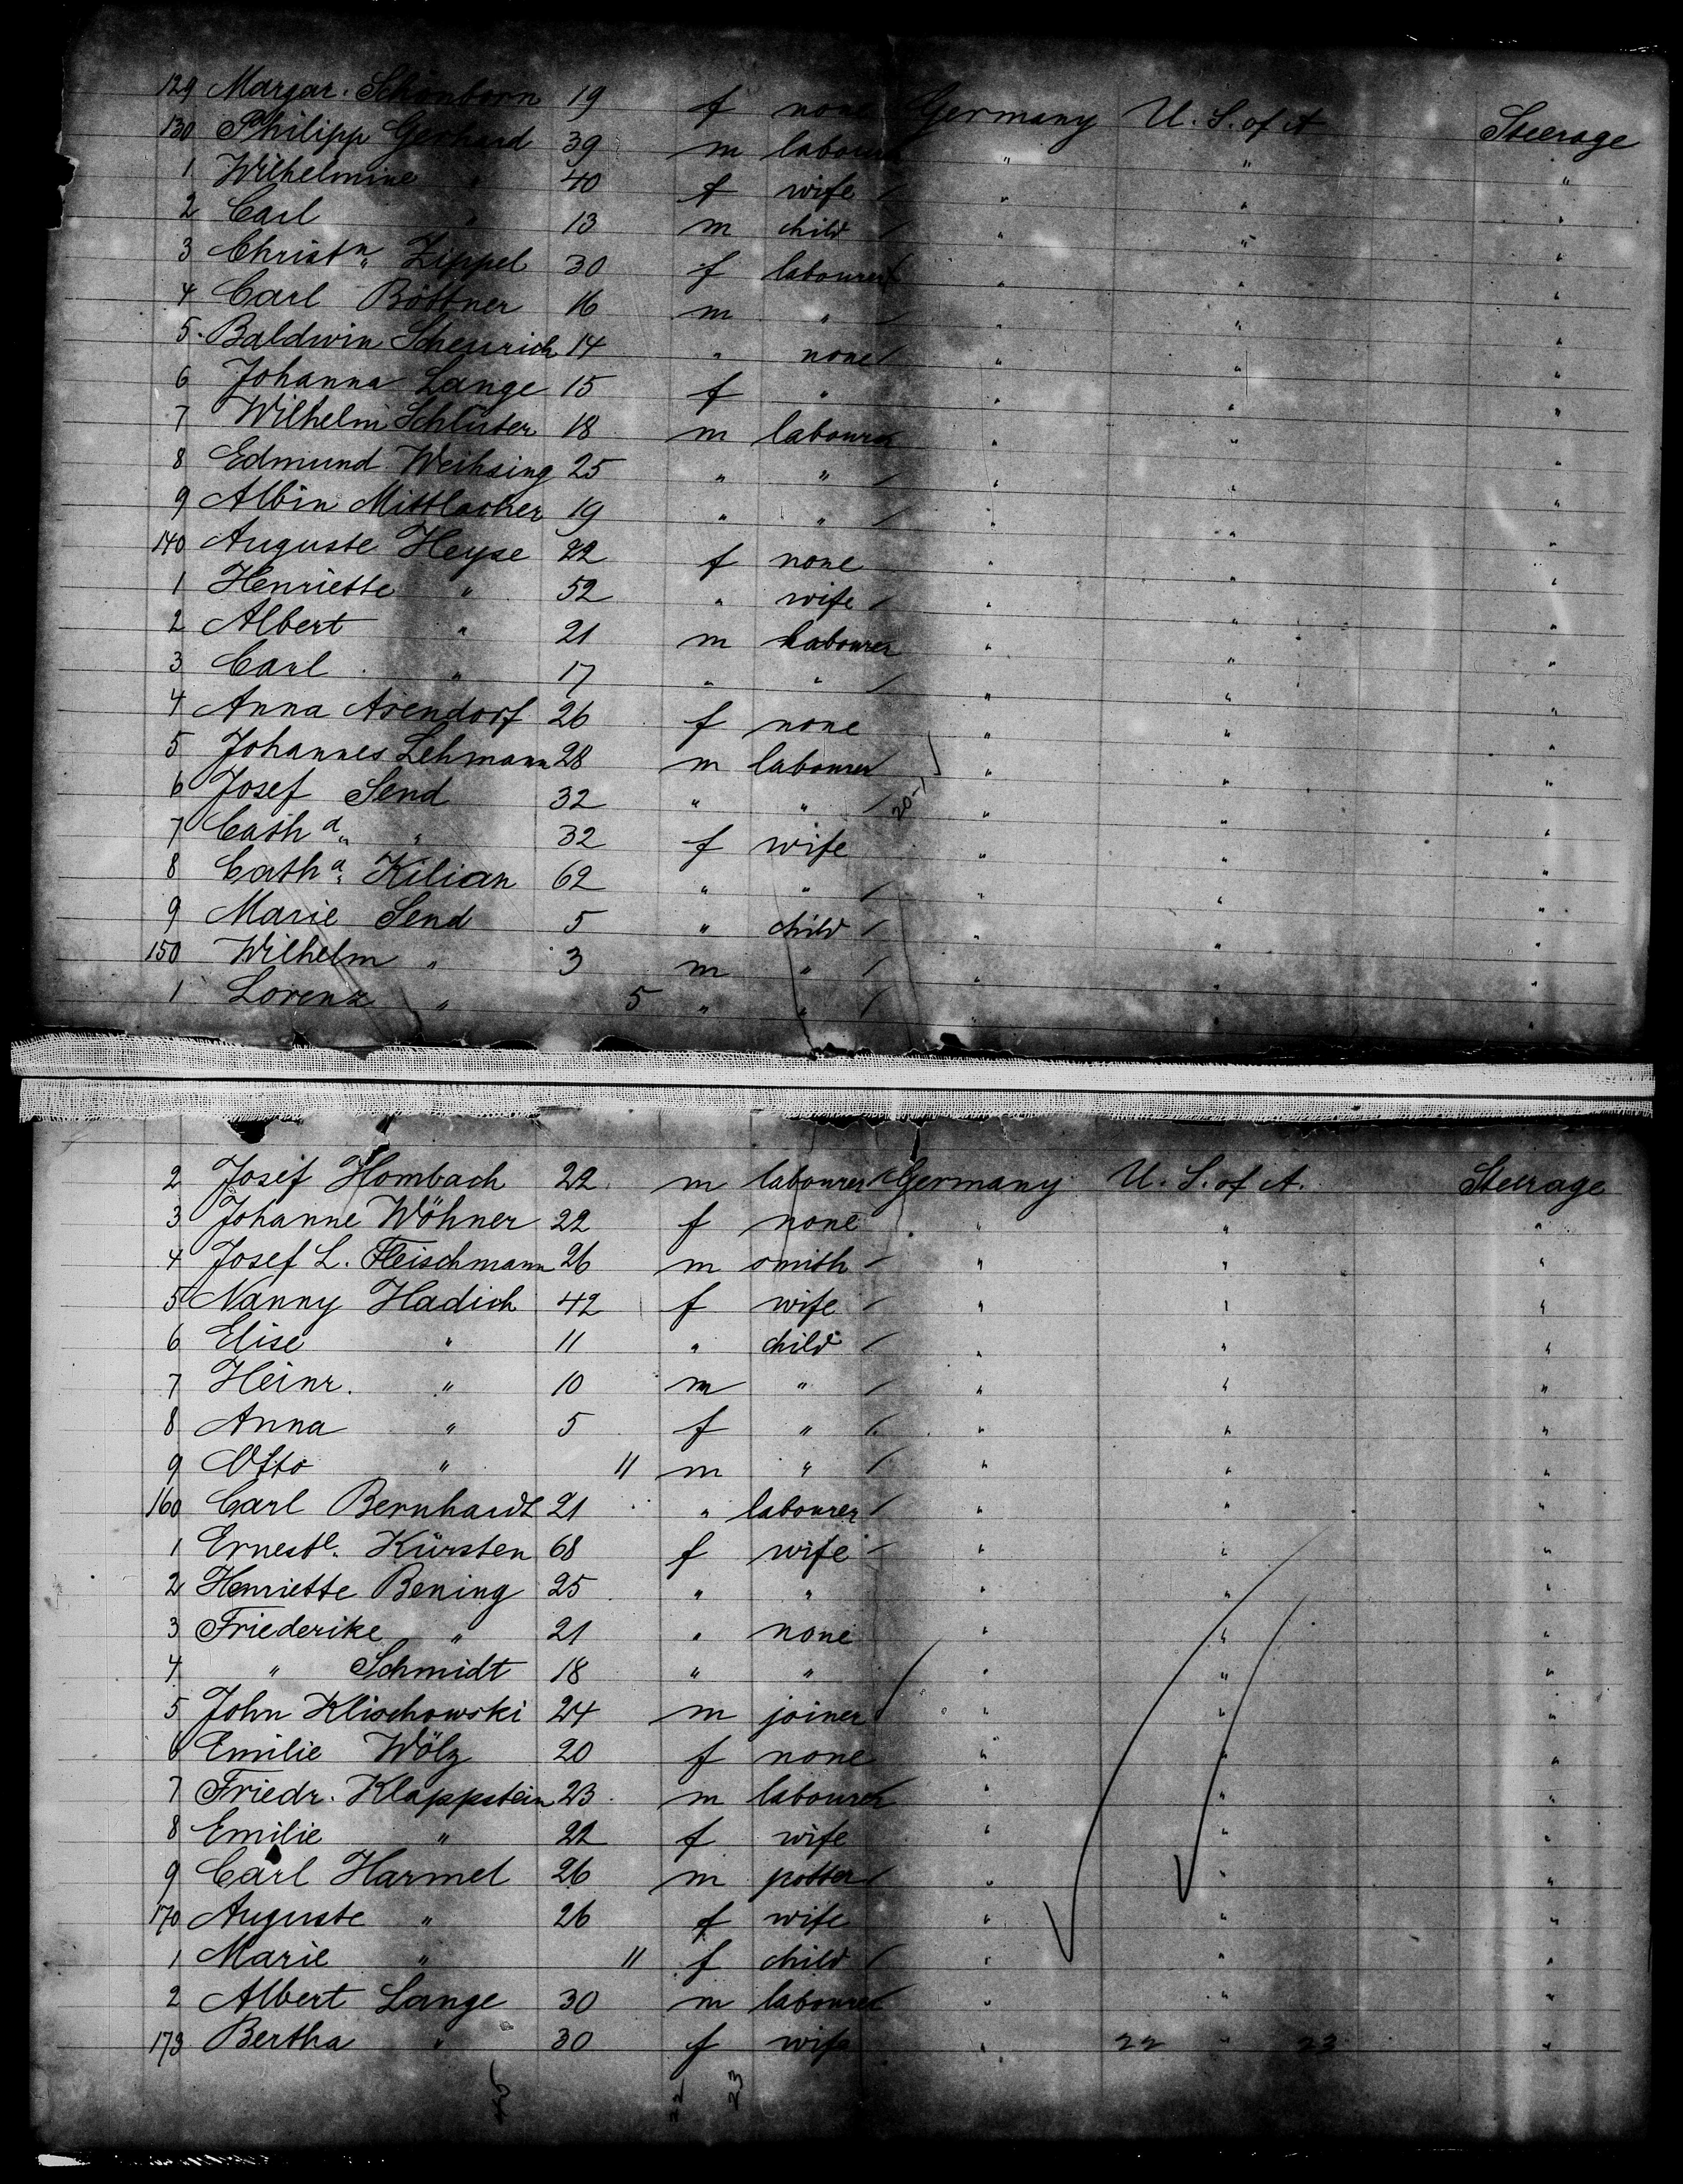 129 Margar. Schönborn 19 f none Germany U. S. of A Steerage
130 Philipp Gerhard 39 m labourer " " "
1 Wilhelmine " 40 f wife / " " "
2 Carl " 13 m child / " " "
3 Christn. Zippel 30 f labourer / " " "
4 Carl Böttner 16 m " / " " "
5. Baldwin Scheurich 14 " none / " " "
6 Johanna Lange 15 f " " " "
7 Wilhelm Schlüter 18 m labourer " " "
8 Edmund Weihsing 25 " " / " " "
9 Albin Mittlacher 19 " " / " " "
140 Auguste Heyse 22 f none " " "
1 Henriette " 52 " wife / " " "
2 Albert " 21 m labourer " " "
3 Carl " 17 " " / " " "
4 Anna Arendorf 26 f none " " "
5 Johannes Lehmann 28 m labourer / " " "
6 Josef Send 32 " " / " " "
7 Catha. " 32 f wife " " "
8 Catha. Kilian 62 " " / " " "
9 Marie Send 5 " child / " " "
150 Wilhelm " 3 m " / " " "
1 Lorenz " 5 " " / " " "
2 Josef Hombach 22 m labourer Germany U. S. of A. Steerage
3 Johanne Wöhner 22 f none " " "
4 Josef L. Fleischmann 26 m smith / " " "
5 Nanny Hadich 42 f wife / " " "
6 Elise " 11 " child / " " "
7 Heinr. " 10 m " / " " "
8 Anna " 5 f " / " " "
9 Otto " 11 m " / " " "
160 Carl Bernhardt 21 " labourer / " " "
1 Ernestе. Kürsten 68 f wife / " " "
2 Henriette Bening 25 " " " " "
3 Friederike " 21 " none " " "
4 " Schmidt 18 " " / " " "
5 John Klischowski 24 m joiner " " "
6 Emilie Wölz 20 f none " " "
7 Friedr. Klappstein 23 m labourer " " "
8 Emilie " 22 f wife " " "
9 Carl Harmel 26 m potter / " " "
170 Auguste " 26 f wife " " "
1 Marie " 11 f child / " " "
2 Albert Lange 30 m labourer " " "
173 Bertha " 30 f wife " 22 " 23 "
45 22 23